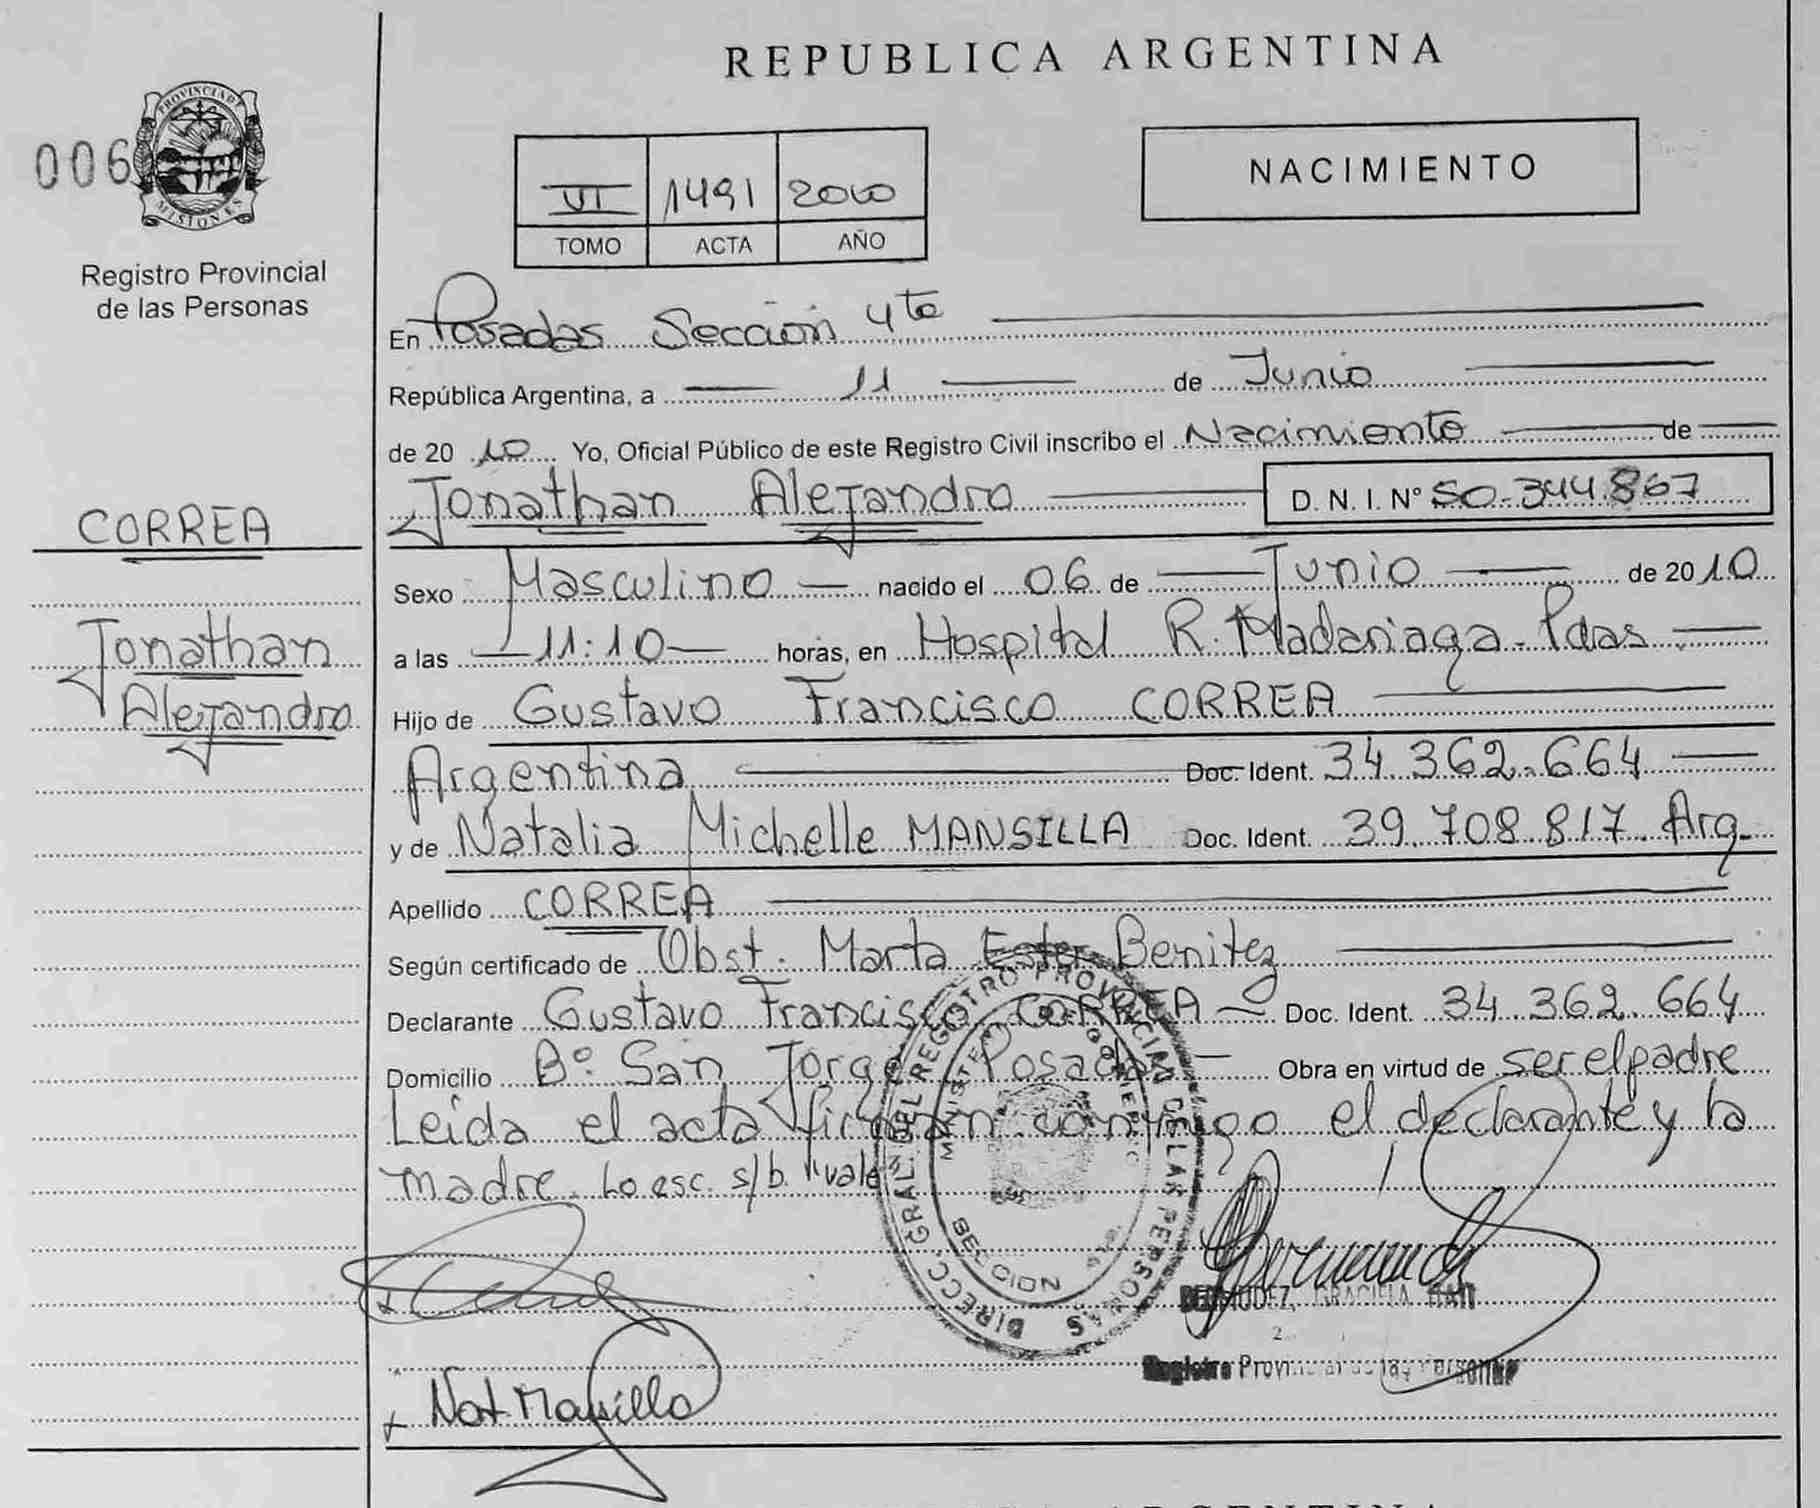 REPUBLICA ARGENTINA
006
PROVINCIA DE
MISIONES
Registro Provincial
de las Personas
VI 1491 2010
TOMO ACTA AÑO
NACIMIENTO
En Posadas Sección 4ta
República Argentina, a 11 de Junio
de 20 10 Yo, Oficial Público de este Registro Civil inscribo el Nacimiento de
Jonathan Alejandro D. N. I. Nº 50.344.867
CORREA
Jonathan
Alejandro
Sexo Masculino nacido el 06 de Junio de 2010
a las 11:10 horas, en Hospital R. Madariaga - Pdas.
Hijo de Gustavo Francisco CORREA
Argentina Doc. Ident. 34.362.664
y de Natalia Michelle MANSILLA Doc. Ident. 39.708.817. Arg.
Apellido CORREA
Según certificado de Obst. Marta Ester Benitez
Declarante Gustavo Francisco CORREA Doc. Ident. 34.362.664
Domicilio Bº San Jorge Posadas Obra en virtud de ser el padre
Leída el acta firman conmigo el declarante y la
madre. Lo esc. s/b. "vale
DIRECC. GRAL. DEL REGISTRO PROVINCIAL DE LAS PERSONAS
MINISTERIO DE GOBIERNO
SECCION 4ta.
BERMUDEZ, GRACIELA
Registro Provincial de las Personas
Nat Mansilla